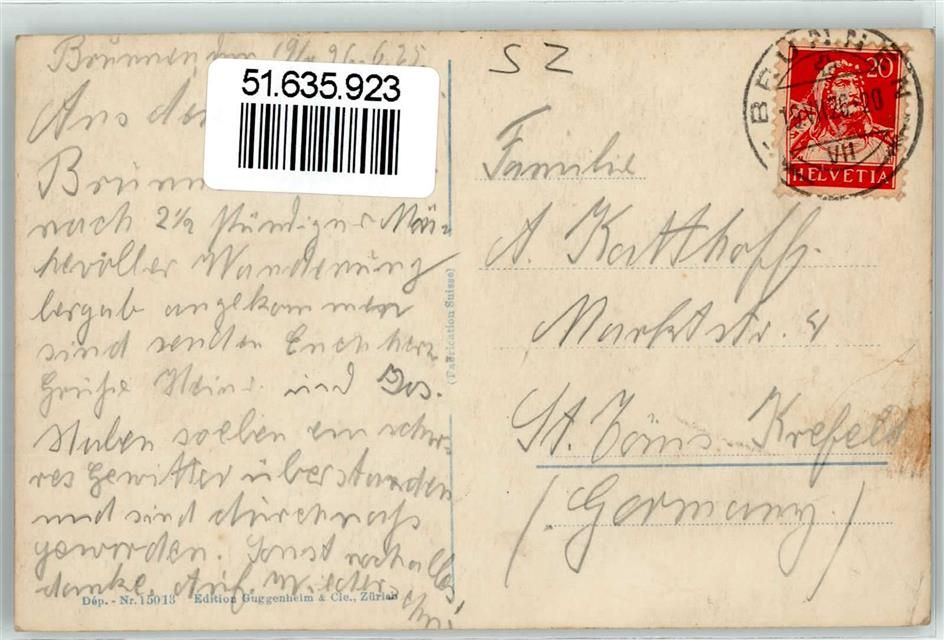 Brunnen den 19/
51.635.923
Aus dem
Brunn
nach 2½ stündiger Mü-
hevoller Wanderung
bergab angekommen
sind senden Euch herz.
Grüße Heinr. und Jos.
Haben soeben ein schwe-
res Gewitter überstanden
und sind durchnaß
geworden. Sonst noch alles
danke. Auf Wieder-
sehn!
Dép. - Nr. 15013 Edition Guggenheim & Cie., Zürich
(Fabrication Suisse)
SZ
BRUNNEN
VII
20
HELVETIA
Familie
A. Katthoff.
Marktstr. 4
St. Tönis Krefeld
(Germany.)